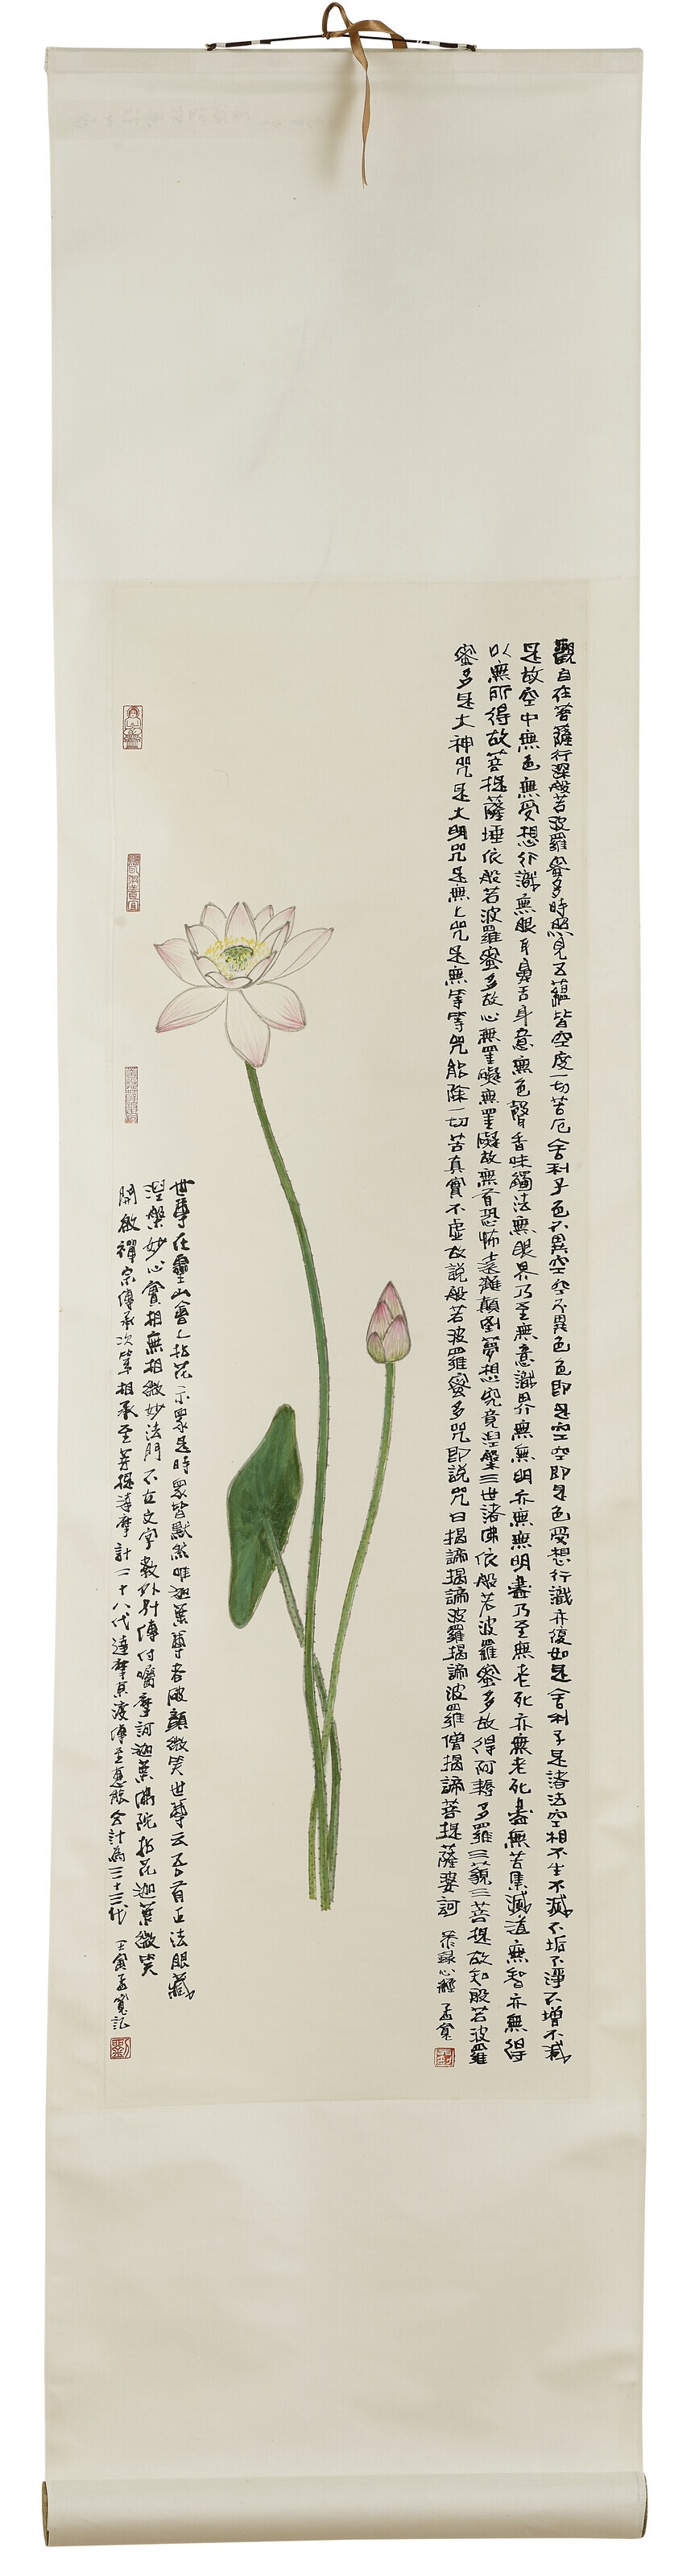 觀自在菩薩行深般若波羅蜜多時照見五蘊皆空度一切苦厄舍利子色不異空空不異色色即是空空即是色受想行識亦復如是舍利子是諸法空相不生不滅不垢不淨不增不減
是故空中無色無受想行識無眼耳鼻舌身意無色聲香味觸法無眼界乃至無意識界無無明亦無無明盡乃至無老死亦無老死盡無苦集滅道無智亦無得
以無所得故菩提薩埵依般若波羅蜜多故心無罣礙無罣礙故無有恐怖遠離顛倒夢想究竟涅槃三世諸佛依般若波羅蜜多故得阿耨多羅三藐三菩提故知般若波羅
蜜多是大神咒是大明咒是無上咒是無等等咒能除一切苦真實不虛故説般若波羅蜜多咒即説咒曰揭諦揭諦波羅揭諦波羅僧揭諦菩提薩婆訶 恭錄心經 孟寬
世尊在靈山會上拈花示眾是時眾皆默然唯迦葉尊者破顏微笑世尊云吾有正法眼藏
涅槃妙心實相無相微妙法門不立文字教外別傳付囑摩訶迦葉佛陀拈花迦葉微笑
開啟禪宗傳承次第相承至菩提達摩計二十八代達摩東渡傳至惠能合計為三十三代 壬寅孟寬記